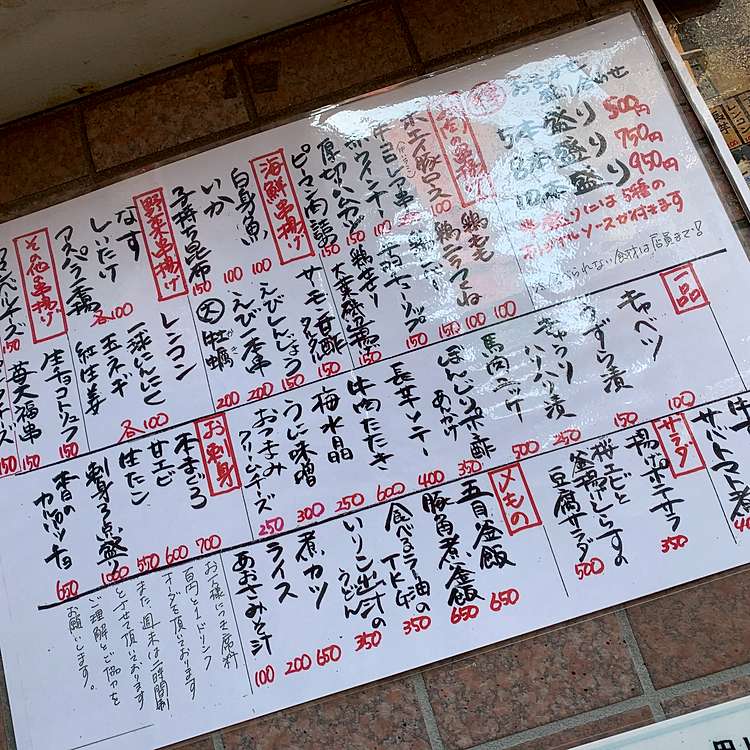 おまかせ
盛り合わせ
5本盛り 500円
8本盛り 750円
10本盛り 950円
盛りには5種の
オリジナルソースが付きます
※食べられない食材は店員まで!
お肉の串揚げ
ホエイ豚ロス
牛ヨレア串
赤ウィンナー 150
厚切りハムカツ 150
ピーマン肉詰 150
鶏もも 100
鶏ニラつくね 100
海鮮串揚げ
白身魚 100
いか 100
子持ち昆布 150
サーモン
えびしんじょう 150
えび一本串 200
大 牡蠣 200
野菜串揚げ
なす
しいたけ
アスパラ一本揚
各100
レンコン
一球にんにく
玉ネギ
紅生姜
各100
その他の串揚げ
生チョコトリュフ 150
苺大福串 150
一品
キャベツ 100
うずら漬 150
きゅうりハリハリ漬 250
馬肉ユッケ 500
ぼんじりポン酢 350
長芋ソテーあんかけ 400
牛肉たたき 600
梅水晶 250
うに味噌 300
おつまみクリームチーズ 250
お刺身
本まぐろ 700
甘エビ 600
生たん 550
刺身3点盛り 1060
本日のカルパッチョ 650
サラダ
揚げポテサラ 350
桜エビと釜揚げしらすの豆腐サラダ 500
〆もの
五目釜飯 650
豚角煮釜飯 650
食べるラー油のTKG 350
いりこ出汁のうどん 350
煮カツ 650
ライス 200
あおさみそ汁 100
お一人様につき席料
百円と1ドリンク
オーダーを頂いております
また、週末は二時間制
とさせて頂いております
ご理解とご協力を
お願いします。